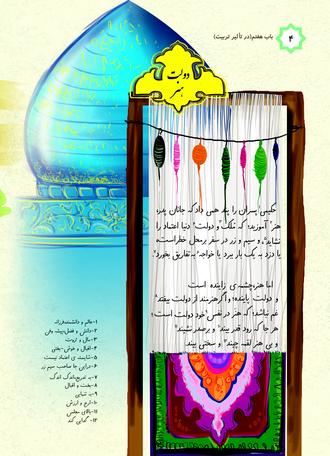 ۴
باب هفتم(در تأثیر تربیت)
دولت
هنر
حکیمی پسران را پند همی داد که جانان پدر،
هنر آموزید؛ که مُلک و دولت دنیا اعتماد را
نشاید و سیم و زر در سفر برمحل خطراست،
یا دزد به یک بار ببرد یا خواجه به تفاریق بخورد
اما هنر،چشمه‌ی زاینده است
و دولت پاینده؛ واگرهنرمند از دولت بیفتد
غم نباشد؛ که هنر در نفس خود دولت است؛
هرجا که رود قدر بیند و برصدر نشیند
و بی هنر لقمه چیند و سختی بیند.
۱-عالم و دانشمند،فرزانه
۲-دانش و فضل،پیشه وفن
۳-مال و ثروت
۴-اقبال و خوش-بختی
۵-شایسته ی اعتماد نیست
۶-دارایی-جا صاحب سیم زر
۷-به تدریج،اندک اندک
۸-بخت و اقبال
۹-به تنهایی
۱۰-ارج و ارزش
۱۱-بالای مجلس
۱۲-گدایی کند